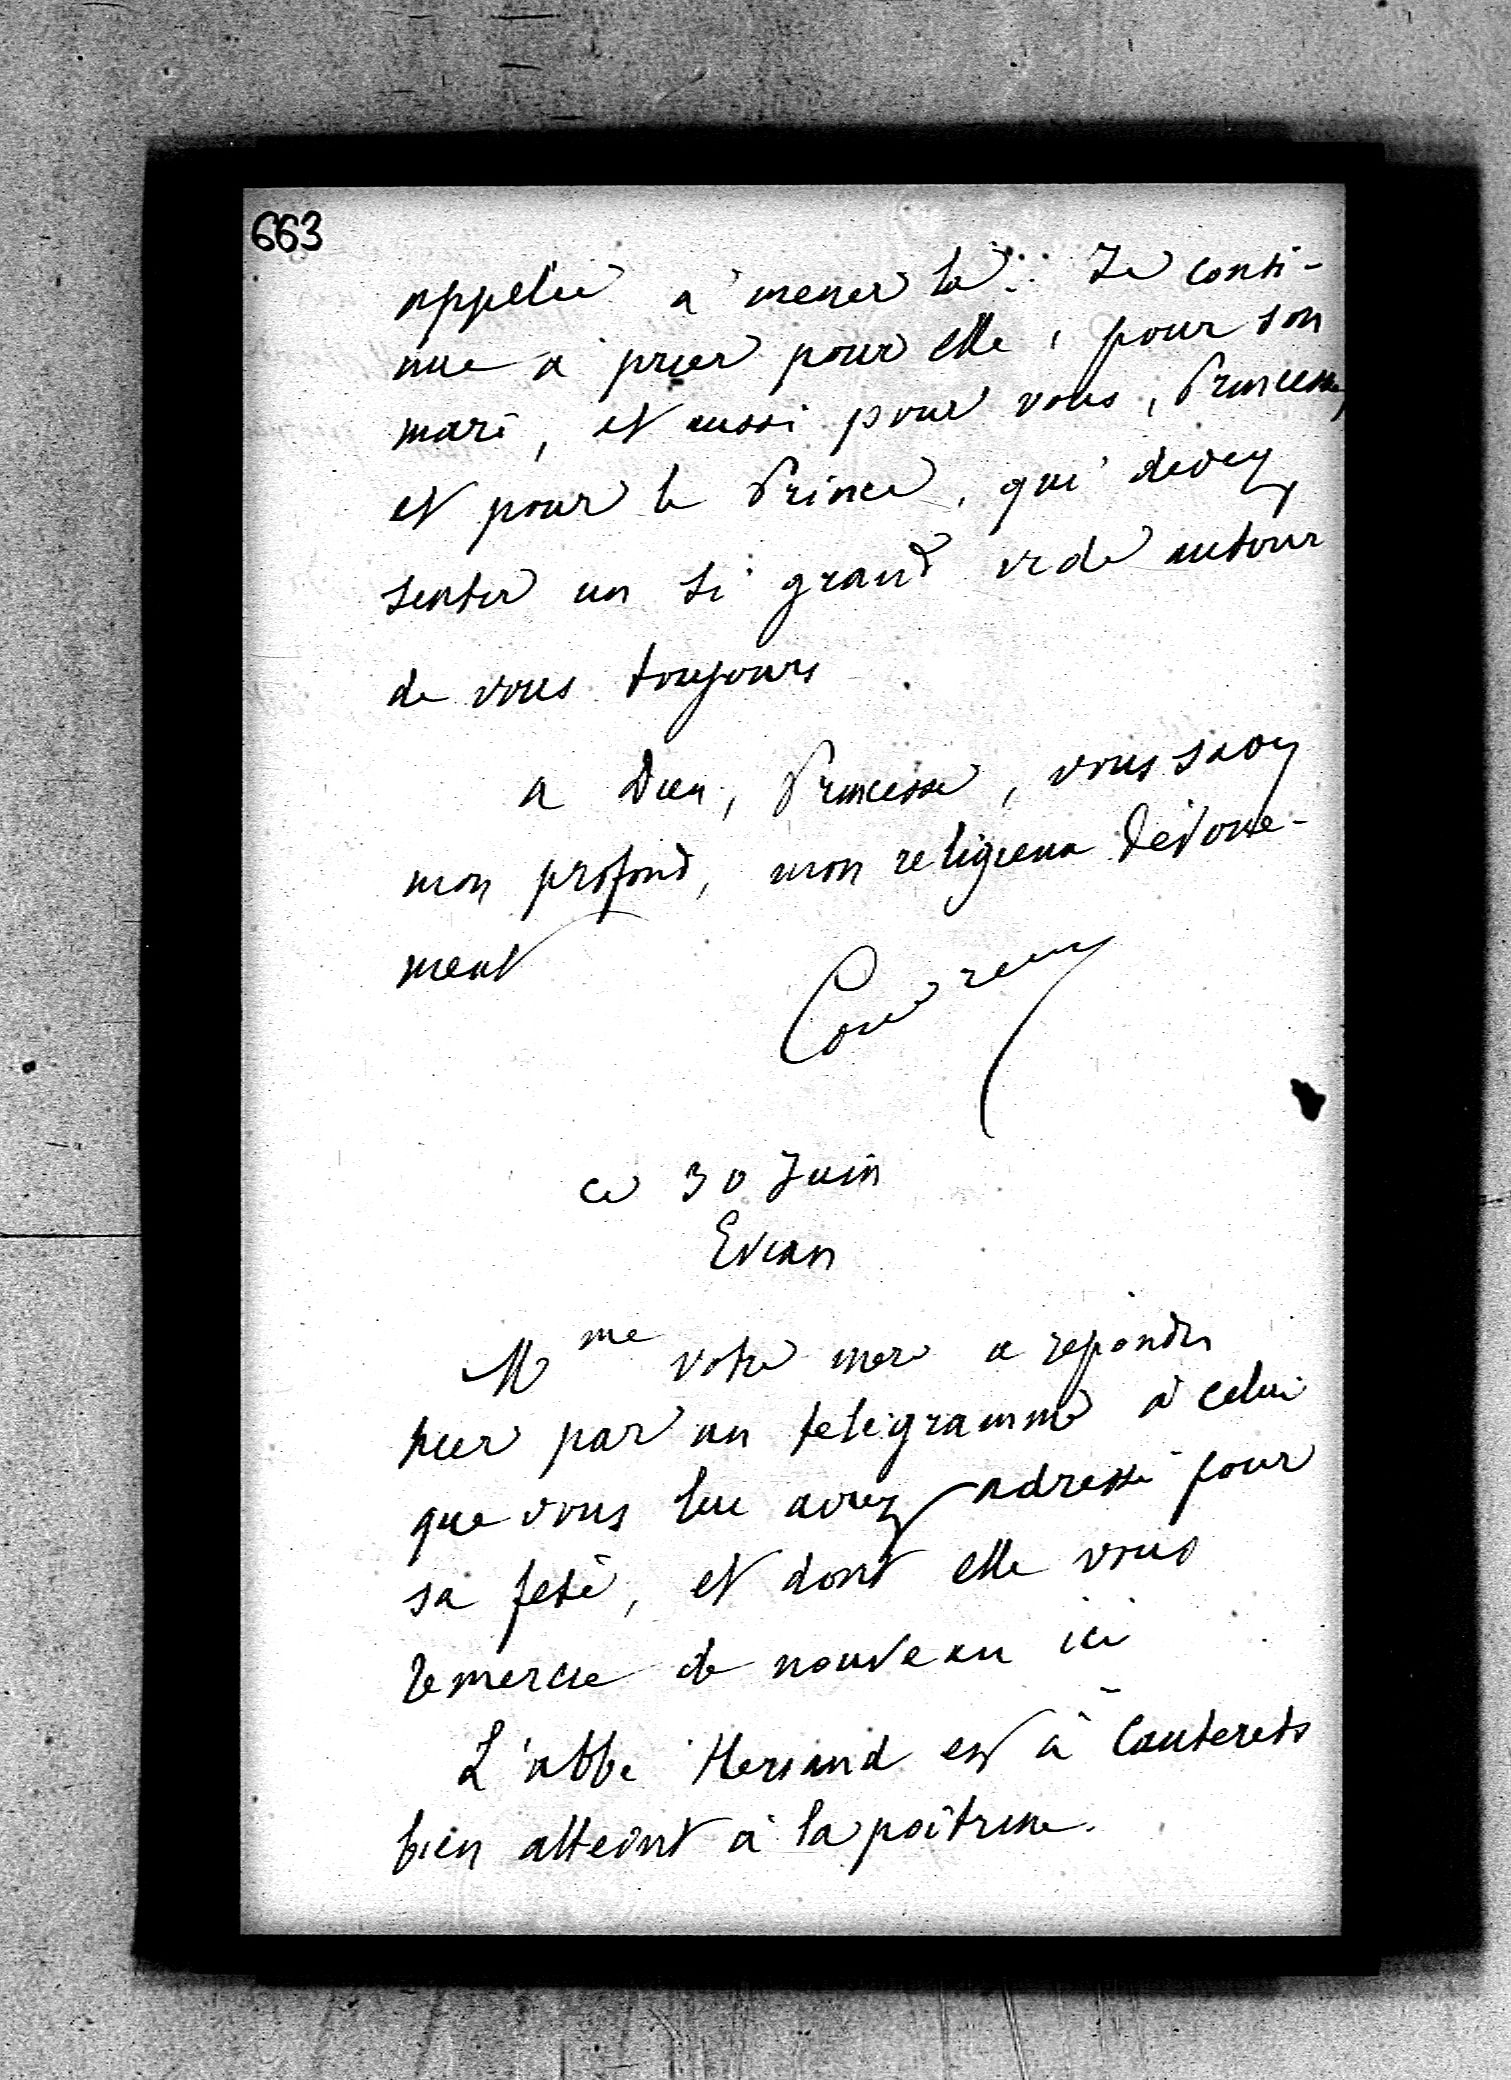 663
appelée à mener là... Je conti-
nue à prier pour elle, pour son
mari, et aussi pour vous, Princesse,
et pour le Prince, qui devez
sentir un si grand vide autour
de vous toujours
a Dieu, Princesse, vous savez
mon profond, mon religieux dévoue-
ment
ce 30 Juin
Evian
Mme votre mere a répondu
hier par un telegramme à celui
que vous lui avez adressé pour
sa fete, et dont elle vous
remercie de nouveau ici
L'abbé est à Cauterets
bien atteint à la poitrine.